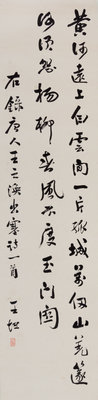 黃河遠上白雲間一片孤城萬仞山羌篴
何須怨楊柳春風不度玉門關
右錄唐人王之渙出塞詩一首 王